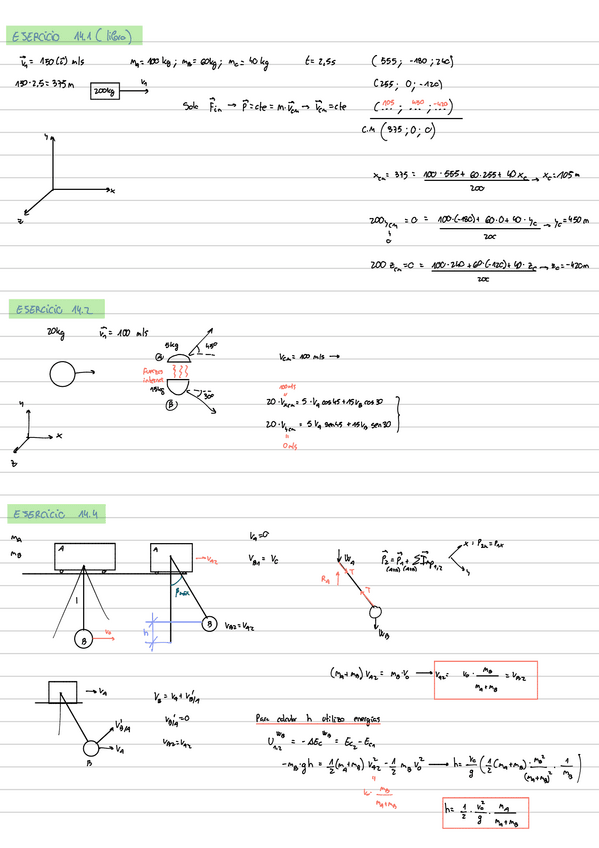 EJERCICIO 14.1 (libro)
v⃗₁ = 150 (i⃗) m/s    m_A = 100 kg ; m_B = 60kg ; m_C = 40 kg    t = 2,5s    (555; -180; 240)
150·2,5 = 375 m    200kg    v₁    (255; 0; -120)
Solo F⃗in → p⃗ = cte = m·v⃗cm → v⃗cm = cte    (105; 450; -420)
C.M (375; 0; 0)
y
x
z
x_cm = 375 = (100·555 + 60·255 + 40 x_c)/200 → x_c = 105 m
200 y_cm = 0 = (100·(-180) + 60·0 + 40·y_c)/200 → y_c = 450 m
0
200 z_cm = 0 = (100·240 + 60·(-120) + 40·z_c)/200 → z_c = -420m
EJERCICIO 14.2
20kg    v⃗₁ = 100 m/s
5kg    45º
A
Fuerzas
internas
15kg
30º
B
v_cm = 100 m/s →
100 m/s
20·v_xcm = 5·v_A cos45 + 15 v_B cos 30
20·v_ycm = 5 v_A sen45 + 15 v_B sen 30
0 m/s
y
x
z
EJERCICIO 14.4
m_A
m_B
A    A    v_A2
l    βmax
B    v₀    h    B    v_B2 = v_A2
v_A = 0
v_B1 = v_0
W_A
R_A
T
T
W_B
P⃗₂ = P⃗₁ + ΣI⃗mp₁,₂
(A+B) (A+B)
x: P₂ₓ = P₁ₓ
y
(m_A + m_B) v_A2 = m_B·v_0 → v_A2 = v_0 · m_B/(m_A + m_B) = v_B2
v_A
v_B/A
v_A
B
v_B = v_A + v_B/A
v_B/A = 0
v_B2 = v_A2
Para calcular h utilizo energías
U₁₋₂^(W_B) = -ΔEc^(W_B) = Ec₂ - Ec₁
-m_B·g h = 1/2 (m_A + m_B) v_A2² - 1/2 m_B v_0² → h = v_0/g (1/2 (m_A + m_B)· m_B²/(m_A + m_B)² · 1/m_B)
v_0· m_B/(m_A + m_B)
h = 1/2 · v_0²/g · m_A/(m_A + m_B)